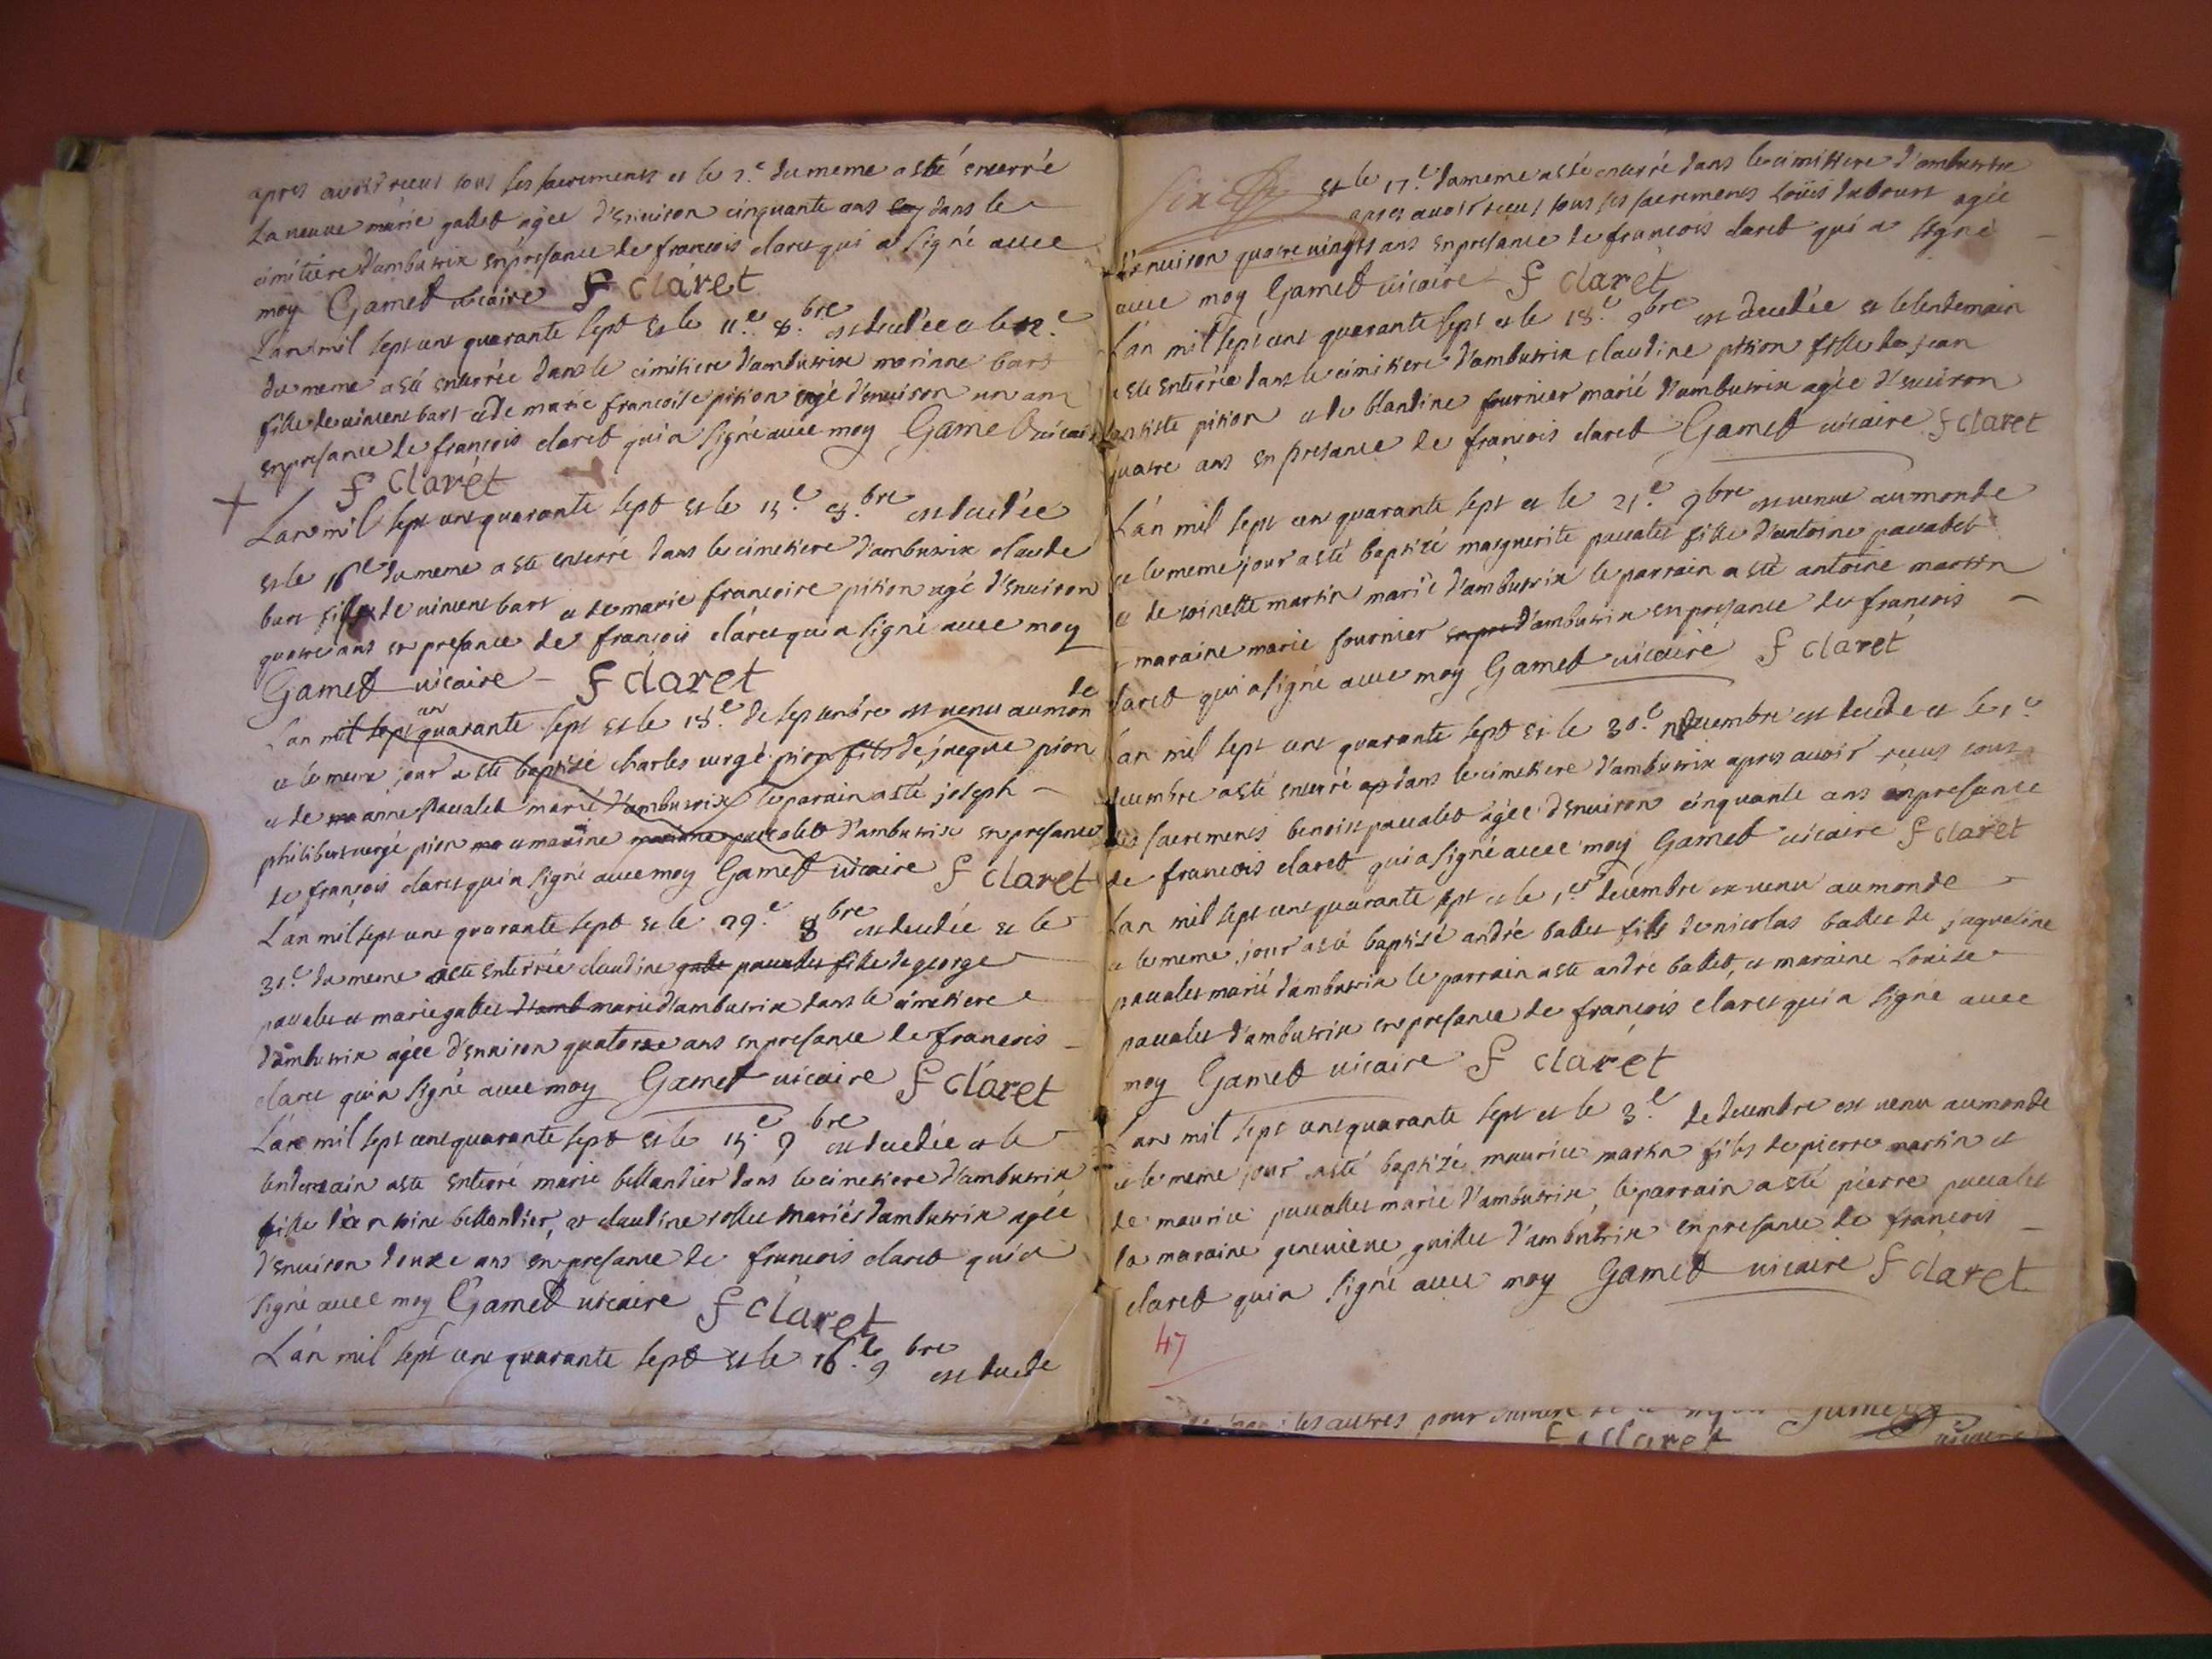 apres avoir receus tous les sacrements et le 2.e du meme a sté enterré
La neuve marie gallet agée d'enuiron cinquante ans dans le
cimitiere d'ambutrix en presance de francois claret qui a signé auec
moy Gamet uicaire F claret
L'an mil sept cent quarante sept et le 11.e 8.bre est decedée et le 12.e
du meme a sté enterrée dans le cimitiere d'ambutrix marianne bart
fille de uincent bart et de marie francoise pition agé d'enuiron un an
en presance de francois claret qui a signé auec moy Gamet uicaire
F claret
L'an mil sept cent quarante sept et le 15.e 8.bre est decedée
et le 16e du meme a sté enterré dans le cimetiere d'ambutrix claude
bart fils de uincent bart et de marie francoise pition agé d'enuiron
quatre ans en presance de francois claret qui a signé auec moy
Gamet uicaire F claret
L'an mil sept cen quarante sept et le 18.e de septembre est uenu au monde
et le meme jour a sté baptizé charles uergé pion fils de jacque pion
et de anne pauallet marié d'ambutrix le parain a sté joseph
philibert uergé pion et maraine marianne pauallet d'ambutrix en presance
de françois claret qui a signé auec moy Gamet uicaire F claret
L'an mil sept cent quarante sept et le 29.e 8bre est decedée et le
31.e du meme a sté enterrée claudine pauallet fille de george
pauallet et marie gallet d'amb marié d'ambutrix dans le cimetiere
d'ambutrix agée d'enuiron quatorze ans en presance de francois
claret qui a signé auec moy Gamet uicaire F claret
L'an mil sept cent quarante sept et le 15.e 9bre est decedée et le
lendemain a sté enterré marie bellandier dans le cimetiere d'ambutrix
fille d'antoine bellandier, et claudine rollet mariés d'ambutrix agée
d'enuiron douze ans en presance de francois claret qui a
signé auec moy Gamet uicaire F claret
L'an mil sept cent quarante sept et le 16.e 9bre est decede
et le 17.e du meme a sté enterré dans le cimitiere d'ambutrix
apres auoir receus tous ses sacrements Loüis dubourt agée
d'enuiron quatre uingts ans en presance de francois claret qui a signé
auec moy Gamet uicaire F claret
L'an mil sept cent quarante sept et le 18.e 9bre est decedée et le lendemain
a sté enterrée dans le cimitiere d'ambutrix claudine pition fille de jean
baptiste pition et de blandine fournier marié d'ambutrix agée d'enuiron
quatre ans en presance de francois claret Gamet uicaire F claret
L'an mil sept cent quarante sept et le 21.e 9bre est uenue au monde
et le meme jour a sté baptizé marguerite pauallet fille d'antoine pauallet
et de toinette martin marié d'ambutrix le parrain a sté antoine martin
et maraine marie fournier d'ambutrix en presance de francois
claret qui a signé auec moy Gamet uicaire F claret
L'an mil sept cent quarante sept et le 30.e nouembre est decede et le 1.e
decembre a sté enterré dans le cimetiere d'ambutrix apres auoir receus tous
les sacrements benoist pauallet agée d'enuiron cinquante ans en presance
de francois claret qui a signé auec moy Gamet uicaire F claret
L'an mil sept cent quarante sept et le 1.er decembre est uenu au monde
et le meme jour a sté baptizé andré ballet fils de nicolas ballet de jaqueline
pauallet marié d'ambutrix le parrain a sté andré ballet, et maraine Louise
pauallet d'ambutrix en presance de francois claret qui a signé auec
moy Gamet uicaire F claret
L'an mil sept cent quarante sept et le 3.e de decembre est uenu au monde
et le meme jour a sté baptizé maurice martin fils de pierre martin et
de maurice pauallet marié d'ambutrix, le parrain a sté pierre pauallet
la maraine geneuieue guillet d'ambutrix en presance de francois
claret qui a signé auec moy Gamet uicaire F claret
47
les autres pour Gamet
F claret uicaire